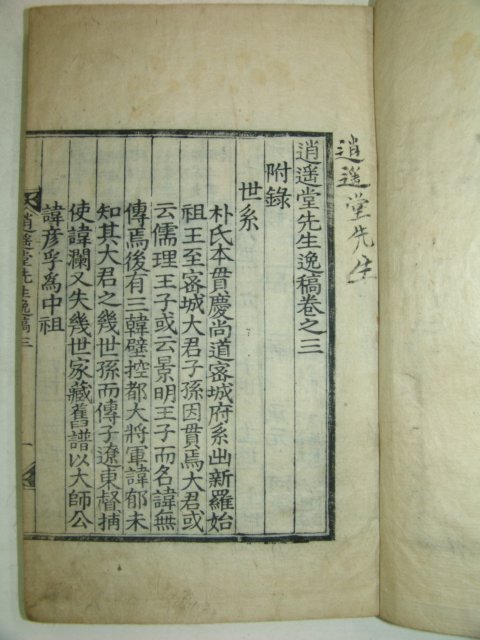 逍遥堂先生
逍遥堂先生逸稿卷之三
附錄
世系
朴氏本貫慶尚道密城府系出新羅始
祖王至密城大君子孫因貫焉大君或
云儒理王子或云景明王子而名諱無
傳焉後有三韓壁控都大將軍諱郁未
知其大君之幾世孫而傳子遼東督捕
使諱瀾又失幾世家藏舊譜以大師公
諱彦孚爲中祖
逍遥堂先生逸稿 三 一